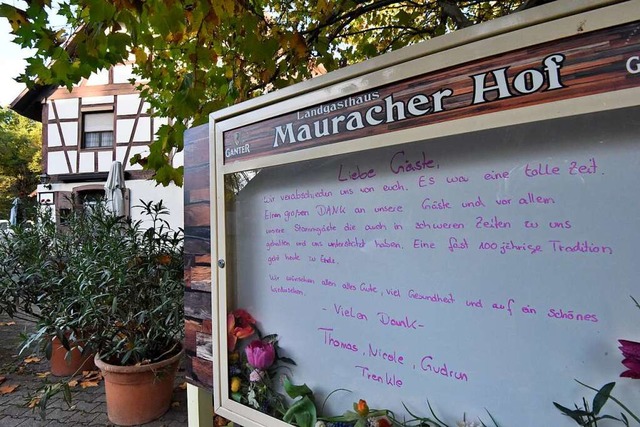 Landgasthaus
Mauracher Hof
GANTER
G
Liebe Gäste,
Wir verabschieden uns von euch. Es war eine tolle Zeit.
Einen großen DANK an unsere Gäste und vor allem
unsere Stammgäste die auch in schweren Zeiten zu uns
gehalten und uns unterstützt haben. Eine fast 100 jährige Tradition
geht heute zu Ende.
Wir wünschen allen alles Gute, viel Gesundheit und auf ein schönes
Wiedersehen.
- Vielen Dank -
Thomas, Nicole, Gudrun
Trenkle